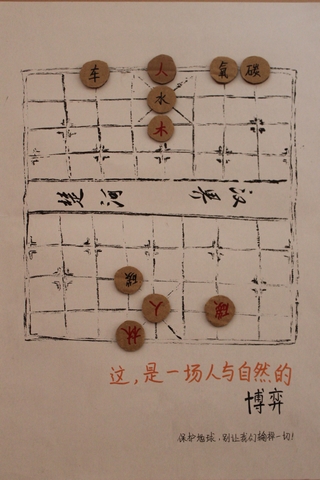 车 人 氧 碳
水
木
楚 河 汉 界
碳
人 碳
林
这,是一场人与自然的
博弈
保护地球,别让我们输掉一切!